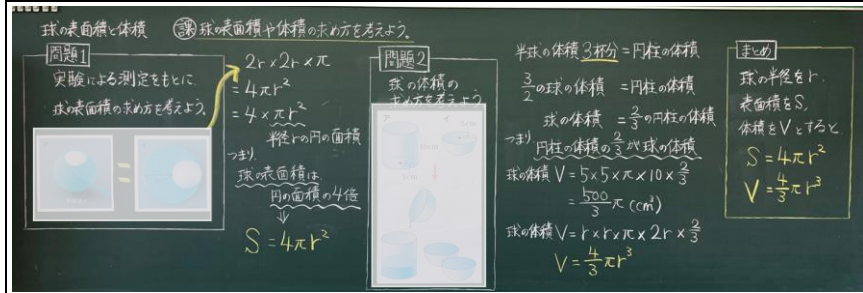 球の表面積と体積
課 球の表面積や体積の求め方を考えよう。
問題1
実験による測定をもとに
球の表面積の求め方を考えよう。
2r×2r×π
=4πr²
=4×πr²
半径rの円の面積
つまり
球の表面積は
円の面積の4倍
⇓
S=4πr²
問題2
球の体積の
求め方を考えよう
ア
イ
半球の体積3杯分=円柱の体積
3/2の球の体積 =円柱の体積
球の体積 =2/3の円柱の体積
つまり 円柱の体積の2/3が球の体積
球の体積 V=5×5×π×10×2/3
=500/3π (cm³)
球の体積 V=r×r×π×2r×2/3
V=4/3πr³
まとめ
球の半径をr
表面積をS,
体積をVとすると
S=4πr²
V=4/3πr³